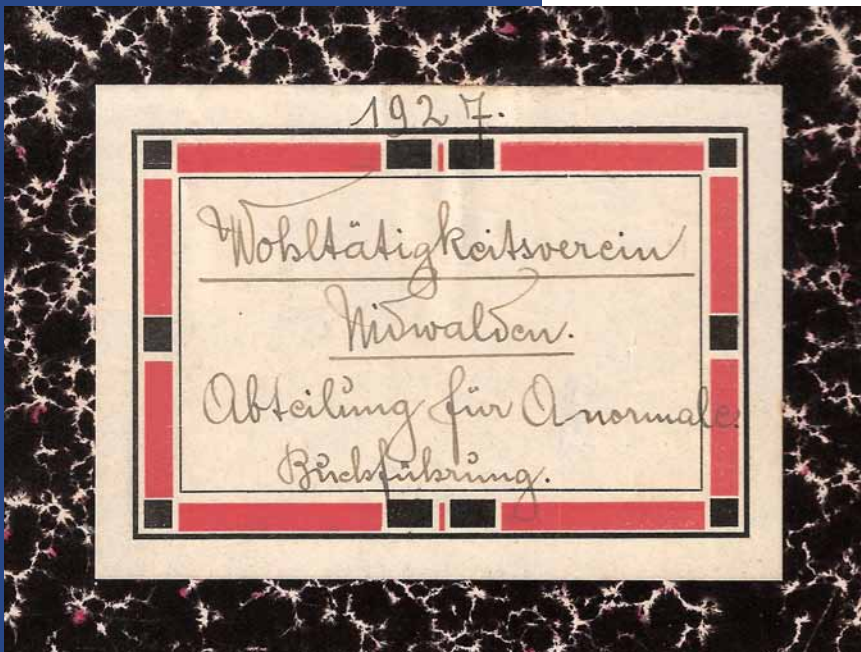 1927.
Wohltätigkeitsverein
Nidwalden.
Abteilung für Anormale.
Buchführung.